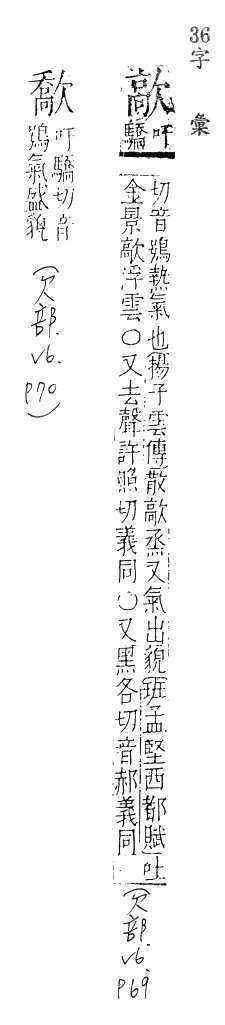 36字 彙
歊 吁驕
切音鴞熱氣也揚子雲傳散歊烝又氣出貌班孟堅西都賦吐
金景歊浮雲○又去聲許照切義同○又黑各切音郝義同
(欠部. v6. p69)
歊 吁驕切音
鴞氣盛貌
(欠部. v6. p70)